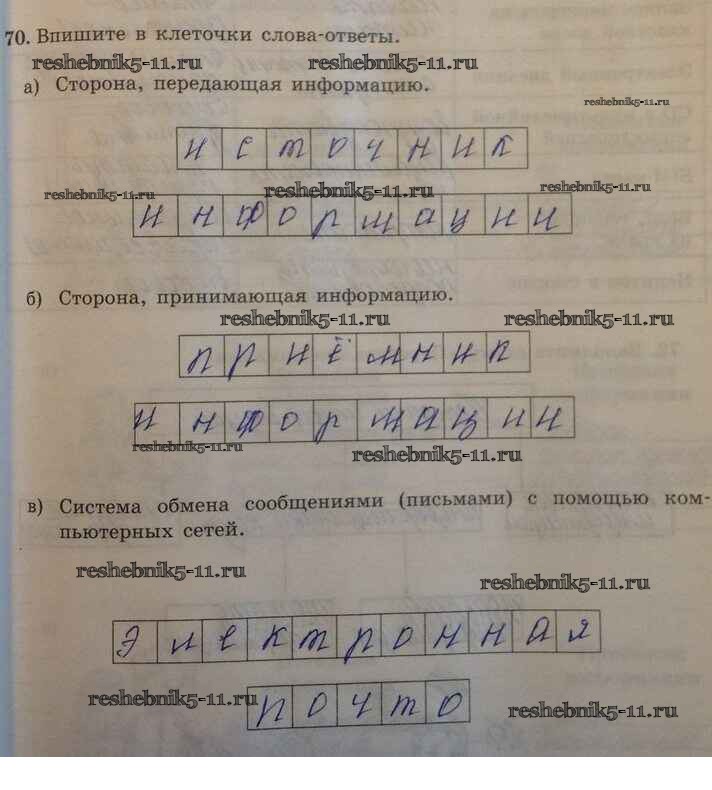 70. Впишите в клеточки слова-ответы.
reshebnik5-11.ru reshebnik5-11.ru
а) Сторона, передающая информацию.
reshebnik5-11.ru
источник
reshebnik5-11.ru reshebnik5-11.ru reshebnik5-11.ru
информации
б) Сторона, принимающая информацию.
reshebnik5-11.ru reshebnik5-11.ru
приёмник
информации
reshebnik5-11.ru reshebnik5-11.ru
в) Система обмена сообщениями (письмами) с помощью ком-
пьютерных сетей.
reshebnik5-11.ru reshebnik5-11.ru
электронная
reshebnik5-11.ru почто reshebnik5-11.ru